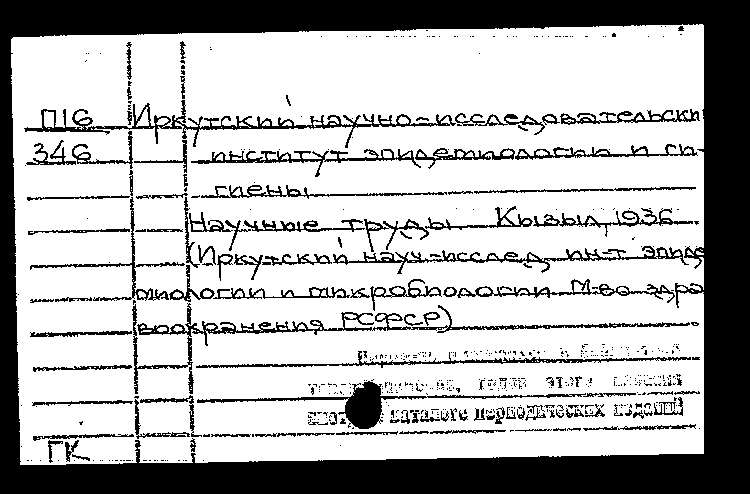 П16 Иркутский научно-исследовательски
346 институт эпидемиологии и ги-
гиены
Научные труды Кызыл, 1936
(Иркутский науч-исслед. ин-т эпиде
миологии и микробиологии М-во здра
воохранения РСФСР)
в
годов этого издания
каталоге периодических изданий
ГК